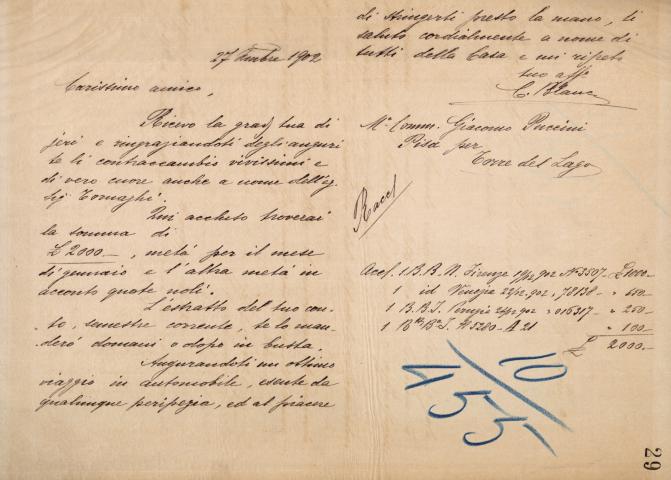 27 Xmbre 1902
Carissimo amico,
Ricevo la grad. tua di
jeri e ringraziandoti degli auguri
te li contraccambio vivissimi e
di vero cuore anche a nome dell'eg.
Sig Tornaghi.
Qui accluso troverai
la somma di
£ 2000.-, metà per il mese
di gennaio e l'altra metà in
acconto quote noli.
L'estratto del tuo con-
to, semestre corrente, te lo man-
derò domani o dopo in busta.
Augurandoti un ottimo
viaggio in automobile, esente da
qualunque peripezia, ed al piacere
di stringerti presto la mano, ti
saluto cordialmente a nome di
tutti della Casa e mi ripeto
tuo aff
C. Blanc
Mo Comm. Giacomo Puccini
Pisa per
Torre del Lago
Racc
Accl. 1 B.B.N. Firenze 902 No 3507 - £ 1000.-
1 id Venezia 22/12 902, 78138 - " 650 -
1 B.B.I. Perugia 902 " 016317 - " 250 -
1 I. № 5280 - A 21 " 100 -
£ 2000.-
10
455
29